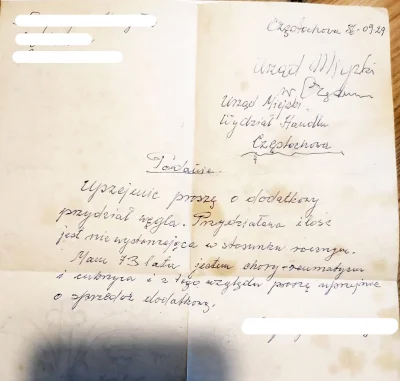 Częstochowa 76-09-29
Urząd Miejski
w
Urząd Miejski
Wydział Handlu
Częstochowa
Podanie.
Uprzejmie proszę o dodatkowy
przydział węgla. Przydzielana ilość
jest nie wystarczająca w stosunku rocznym.
Mam 73 lata jestem chory-reumatyzm
i cukrzyca i z tego względu proszę uprzejmie
o sprzedaż dodatkową.